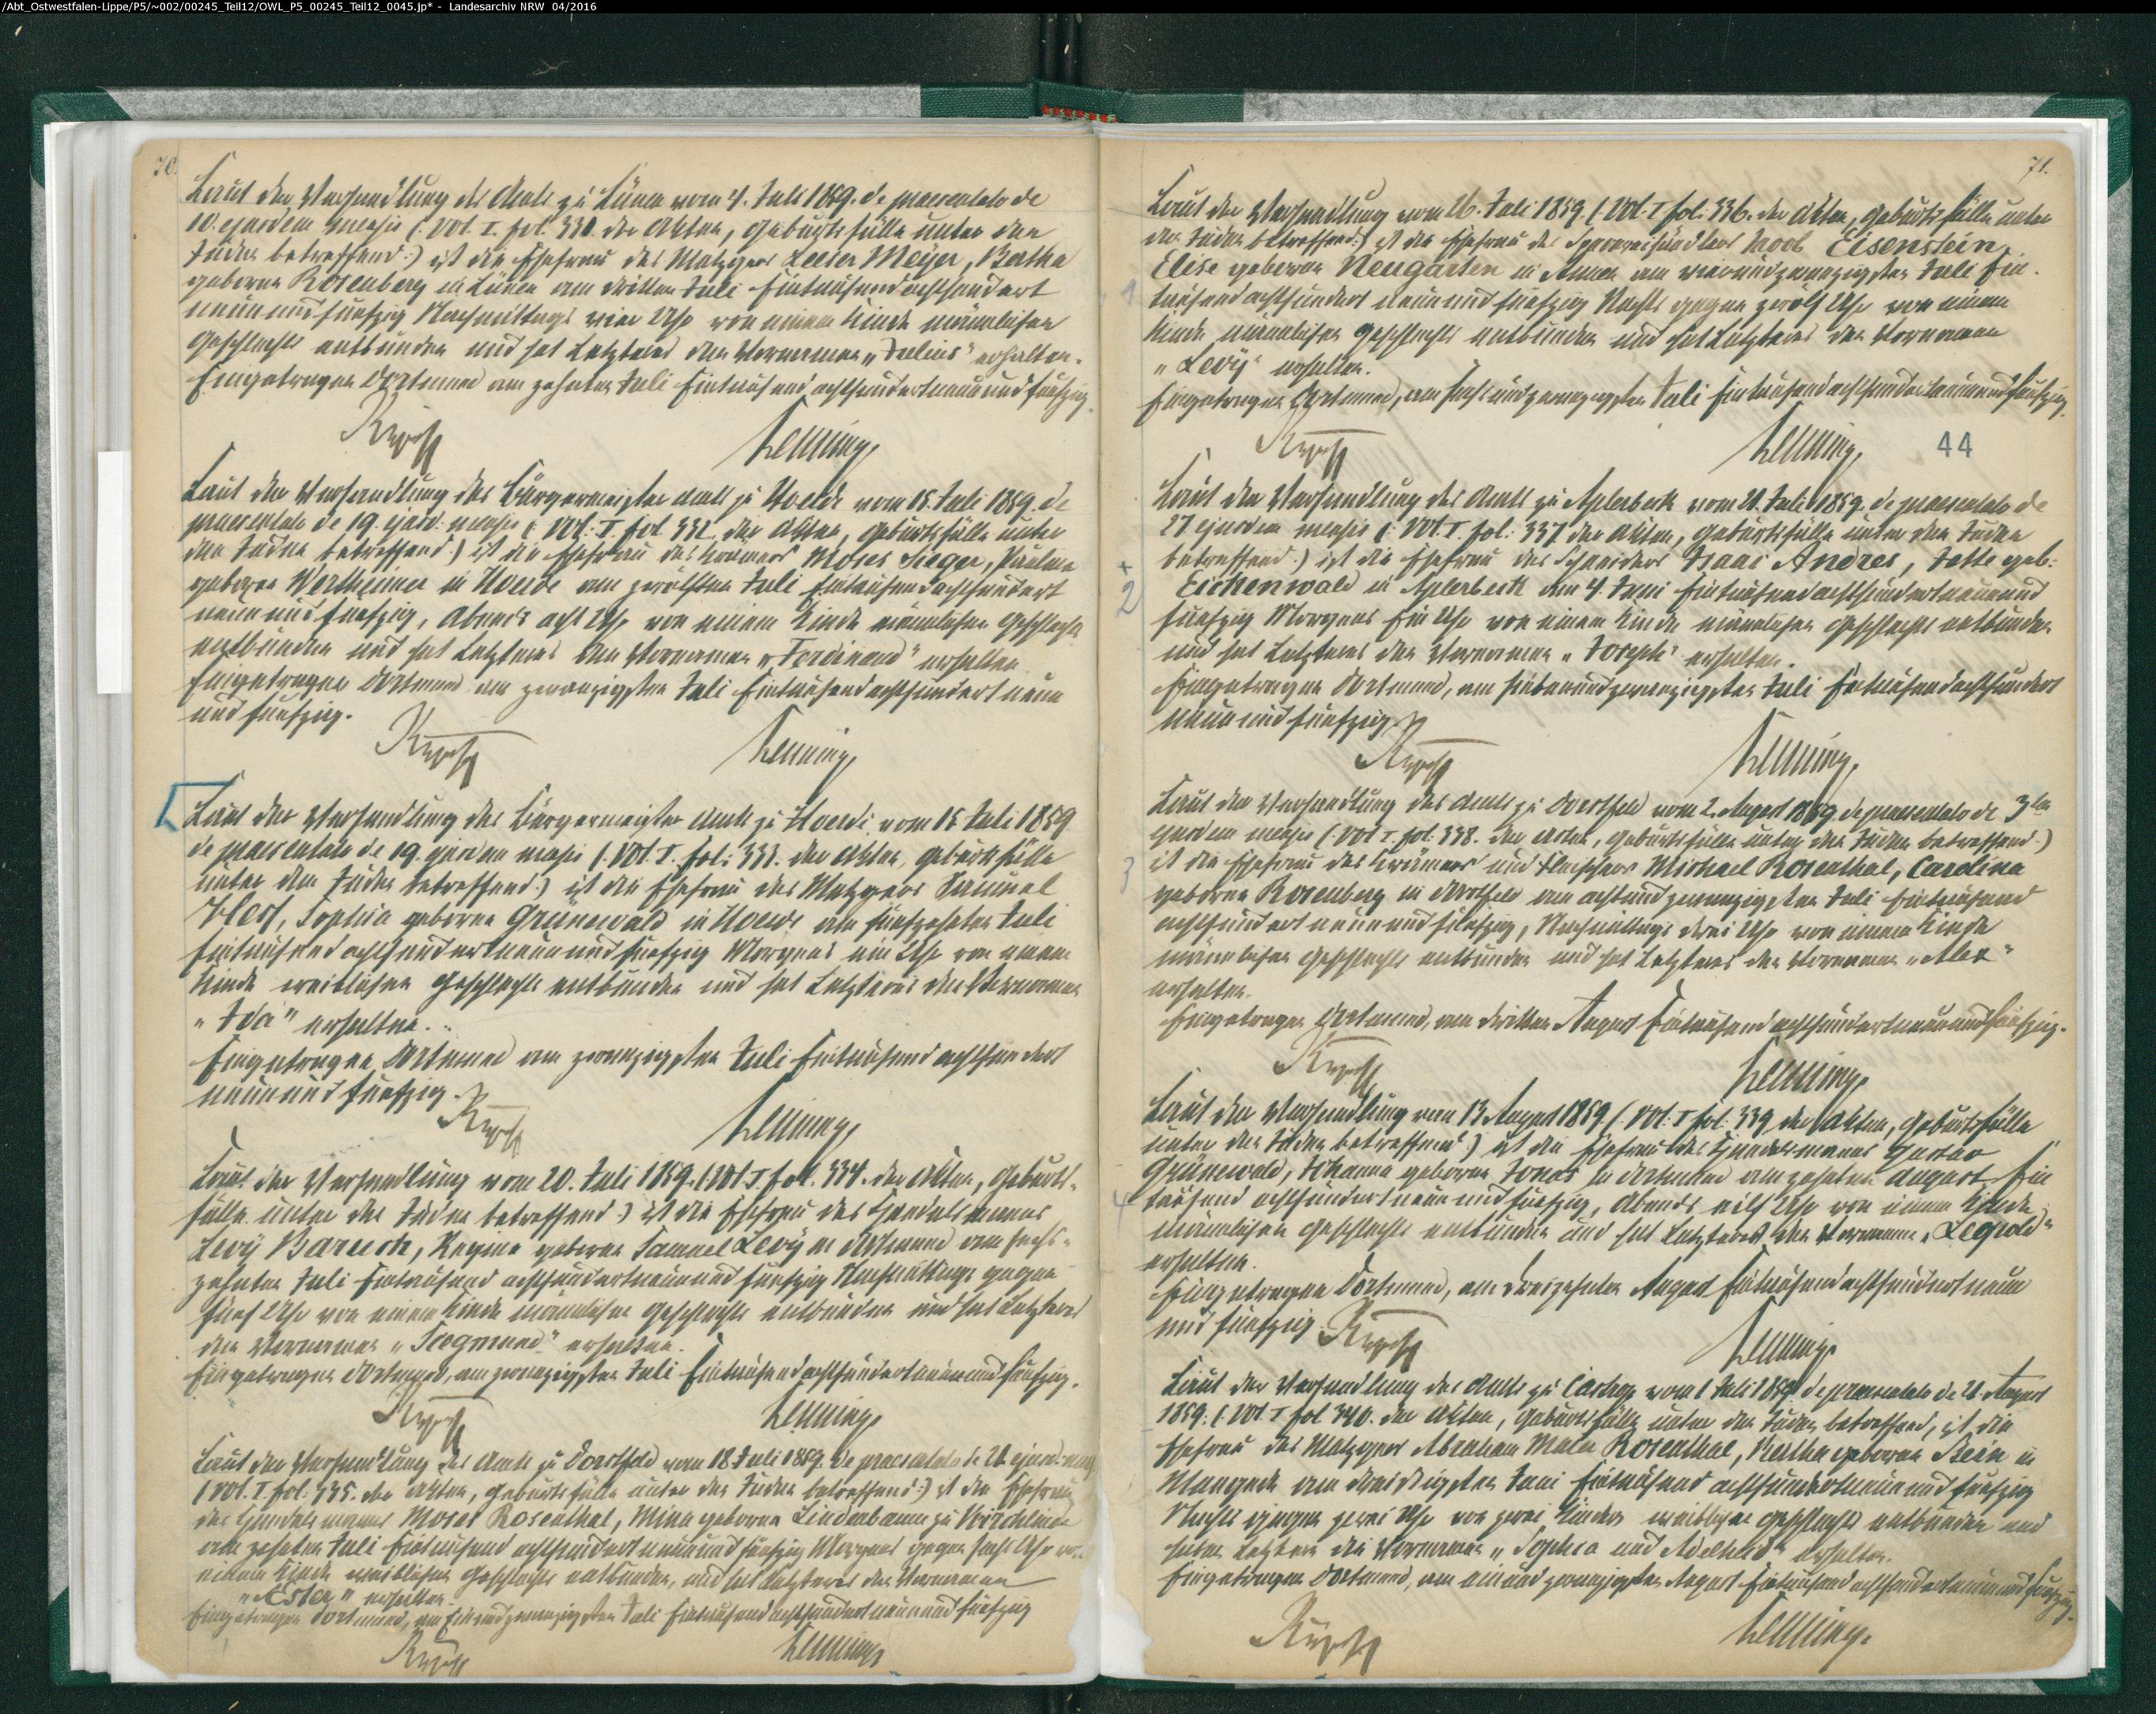 /Abt_Ostwestfalen-Lippe/P5/~002/00245_Teil12/OWL_P5_00245_Teil12_0045.jp* - Landesarchiv NRW 04/2016
70.
Laut der Verhandlung des Amts zu Lünen vom 4. Juli 1859. de praesentato de
10. ejusdem mensis (: Vol. I. fol. 331. der Akten, Geburtsfälle unter den
Juden betreffend :) ist die Ehefrau des Metzgers Meyer, Bertha
geborne Rosenberg in Lünen am dritten Juli Eintausendachthundert
neunundfünfzig Nachmittags vier Uhr von einem Kinde männlichen
Geschlechts entbunden und hat Letzteres den Vornamen „Julius" erhalten.
Eingetragen Dortmund am zehnten Juli Eintausendachthundertneunundfünfzig.
Laut der Verhandlung des Bürgermeister Amts zu Hoerde vom 15. Juli 1859. de
praesentato de 19. ejusd. mensis (: Vol. I. fol. 332. der Akten, Geburtsfälle unter
den Juden betreffend :) ist die Ehefrau des Krämers Moses Steger, Pauline
geborne Wertheimer in Hoerde am zwölften Juli Eintausendachthundert
neunundfünfzig, Abends acht Uhr von einem Kinde männlichen Geschlechts
entbunden und hat Letzteres den Vornamen „Ferdinand" erhalten.
Eingetragen Dortmund am zwanzigsten Juli Eintausendachthundert neun
und fünfzig.
Laut der Verhandlung des Bürgermeister Amts zu Hoerde vom 15 Juli 1859
de praesentato de 19. ejusdem mensis (: Vol. I. fol: 333. der Akten, Geburtsfälle
unter den Juden betreffend :) ist die Ehefrau des Metzgers Samuel
Hess, Sophia geborne Grünewald in Hoerde am fünfzehnten Juli
Eintausendachthundertneunundfünfzig Morgens ein Uhr von einem
Kinde weiblichen Geschlechts entbunden und hat Letzteres den Vornamen
„Ida" erhalten.
Eingetragen Dortmund am zwanzigsten Juli Eintausendachthundert
neunundfünfzig.
Laut der Verhandlung vom 20. Juli 1859. (: Vol. I fol. 334. der Akten, Geburts-
fälle unter den Juden betreffend :) ist die Ehefrau des Handelsmanns
Levÿ Baruch, Regina geborne Samuel Levÿ in Dortmund am sechs-
zehnten Juli Eintausend achthundertneunundfünfzig Nachmittags gegen
fünf Uhr von einem Kinde männlichen Geschlechts entbunden und hat Letzteres
den Vornamen „Siegmund" erhalten.
Eingetragen Dortmund, am zwanzigsten Juli Eintausendachthundertneunundfünfzig.
Laut der Verhandlung des Amts zu Dorstfeld vom 18 Juli 1859. de praesentato de 21. ejusd. mens
(: Vol. I. fol: 335. der Akten, Geburtsfälle unter den Juden betreffend :) ist die Ehefrau
des Handelsmanns Moses Rosenthal, Mina geborne Lindenbaum zu Kirchlinde
am zehnten Juli Eintausend achthundert neunundfünfzig Morgens gegen sechs Uhr von
einem Kinde weiblichen Geschlechts entbunden, und hat Letzteres den Vornamen
„Ester" erhalten.
Eingetragen Dortmund, am Einundzwanzigsten Juli Eintausendachthundertneunundfünfzig
71.
Laut der Verhandlung vom 26. Juli 1859. (: Vol. I fol: 336. der Akten, Geburtsfälle unter
den Juden betreffend :) ist die Ehefrau des Eisenstein,
Elise geborne Neugarten in am vierundzwanzigsten Juli Ein-
tausendachthundert neunundfünfzig Nachts gegen zwölf Uhr von einem
Kinde männlichen Geschlechts entbunden und hat Letzteres den Vornamen
„Levÿ" erhalten.
Eingetragen Dortmund, am sechsundzwanzigsten Juli Eintausendachthundertneunundfünfzig.
44
Laut der Verhandlung des Amts zu Aplerbeck vom 21. Juli 1859. de praesentato de
27 ejusdem mensis (: Vol. I. fol: 337 der Akten, Geburtsfälle unter den Juden
betreffend :) ist die Ehefrau des Schneiders Isaac Andres, Jette geb:
2
Eichenwald in Aplerbeck am 4. Juni Eintausendachthundertneunund
fünfzig Morgens Ein Uhr von einem Kinde männlichen Geschlechts entbunden
und hat Letzteres den Vornamen „Joseph" erhalten.
Eingetragen Dortmund, am siebenundzwanzigsten Juli Eintausendachthundert
neunundfünfzig.
Laut der Verhandlung des Amts zu Dorstfeld vom 2. August 1859. de praesentato de 3ten
ejusdem mensis (: Vol I. fol: 338. der Akten, Geburtsfälle unter den Juden betreffend :)
3
ist die Ehefrau des Krämers und Fleischers Michael Rosenthal, Carolina
geborne Rosenberg in Dorstfeld am achtundzwanzigsten Juli Eintausend
achthundert neunundfünfzig, Nachmittags drei Uhr von einem Kinde
männlichen Geschlechts entbunden und hat Letzteres den Vornamen „Alex"
erhalten.
Eingetragen Dortmund, am dritten August Eintausendachthundertneunundfünfzig.
Laut der Verhandlung vom 13 August 1859 (: Vol. I fol: 339 der Akten, Geburtsfälle
unter den Juden betreffend :) ist die Ehefrau des Handelsmanns Gustav
Grünewald, Johanna geborne Jonas in Dortmund am zehnten August Ein
tausend achthundertneunundfünfzig, Abends eilf Uhr von einem Kinde
4
männlichen Geschlechts entbunden und hat Letzteres den Vornamen „Leopold"
erhalten.
Eingetragen Dortmund, am dreizehnten August Eintausendachthundertneun
und fünfzig.
Laut der Verhandlung des Amts zu Castrop vom 1 Juli 1859 de praesentato de 21. August
1859. (: Vol. I fol 340. der Akten, Geburtsfälle unter den Juden betreffend, ist die
Ehefrau des Metzgers Abraham Rosenthal, Bertha geborne Stein in
Mengede am dreißigsten Juni Eintausend achthundertneunundfünfzig
Nachts gegen zwei Uhr von zwei Kindern weiblichen Geschlechts entbunden und
haben Letztere die Vornamen „Sophia und Adelheid" erhalten.
Eingetragen Dortmund, am einundzwanzigsten August Eintausendachthundertneunundfünfzig.